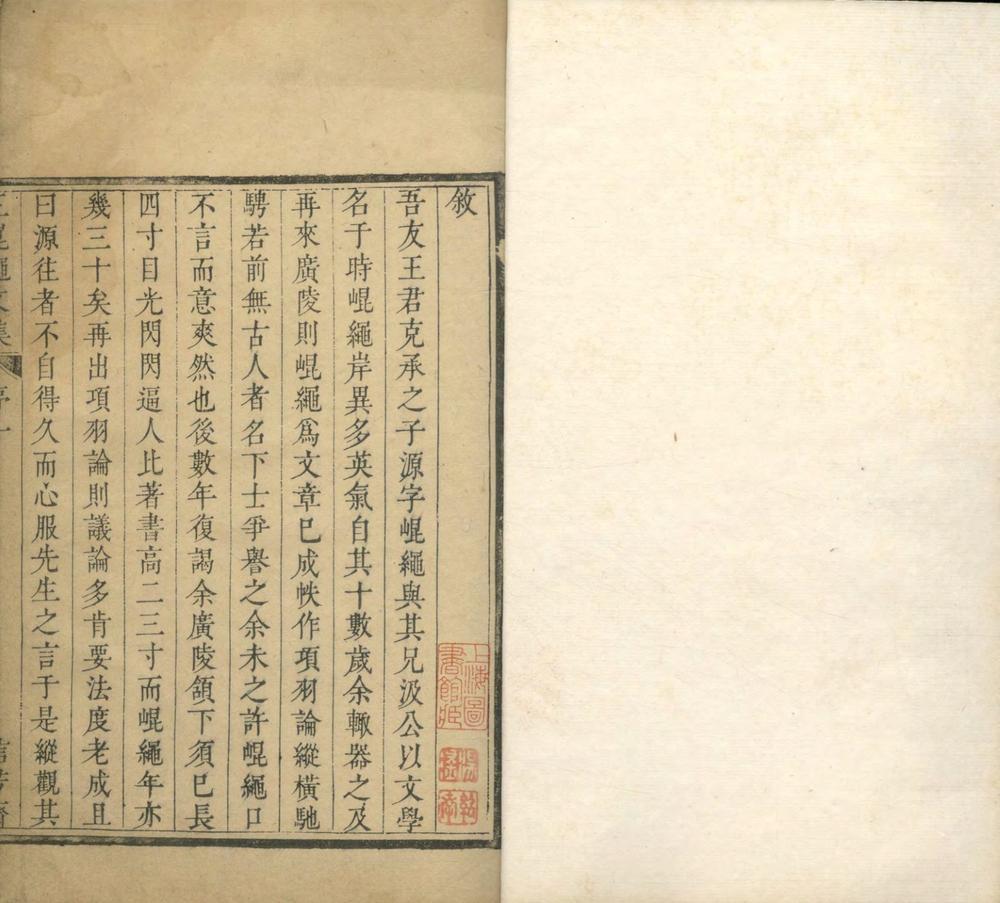 敘
吾友王君克承之子源字崐繩與其兄汲公以文學
名于時崐繩岸異多英氣自其十數歲余輙器之及
再來廣陵則崐繩爲文章已成帙作項羽論縱橫馳
騁若前無古人者名下士爭譽之余未之許崐繩口
不言而意爽然也後數年復謁余廣陵頷下須已長
四寸目光閃閃逼人比著書高二三寸而崐繩年亦
幾三十矣再出項羽論則議論多肯要法度老成且
曰源往者不自得久而心服先生之言于是縱觀其
文集
序一
上海圖
書館藏